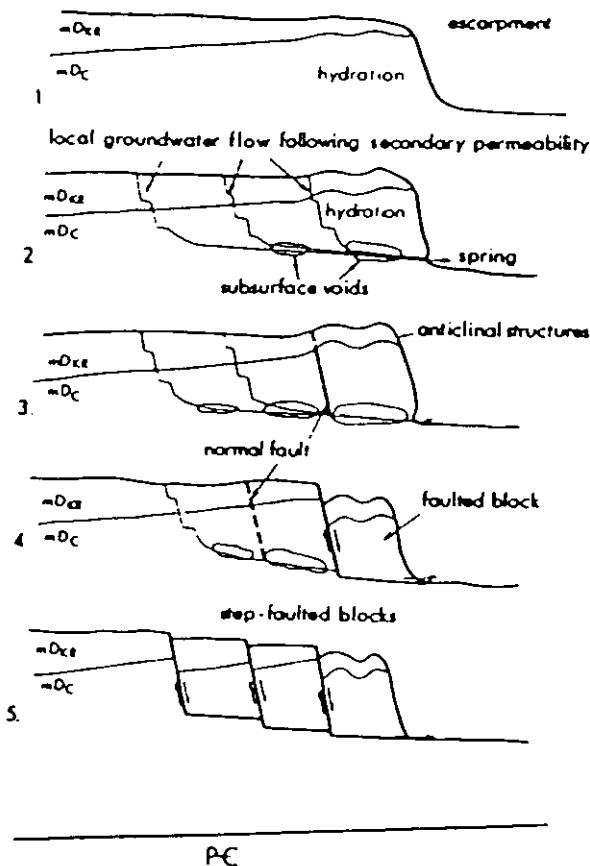 mDKR
escarpment
mDC
hydration
1
local groundwater flow following secondary permeability
mDKR
hydration
mDC
2
spring
subsurface voids
anticlinal structures
mDKR
mDC
3.
normal fault
mDKR
faulted block
mDC
4
step-faulted blocks
mDKR
mDC
5.
P-Є